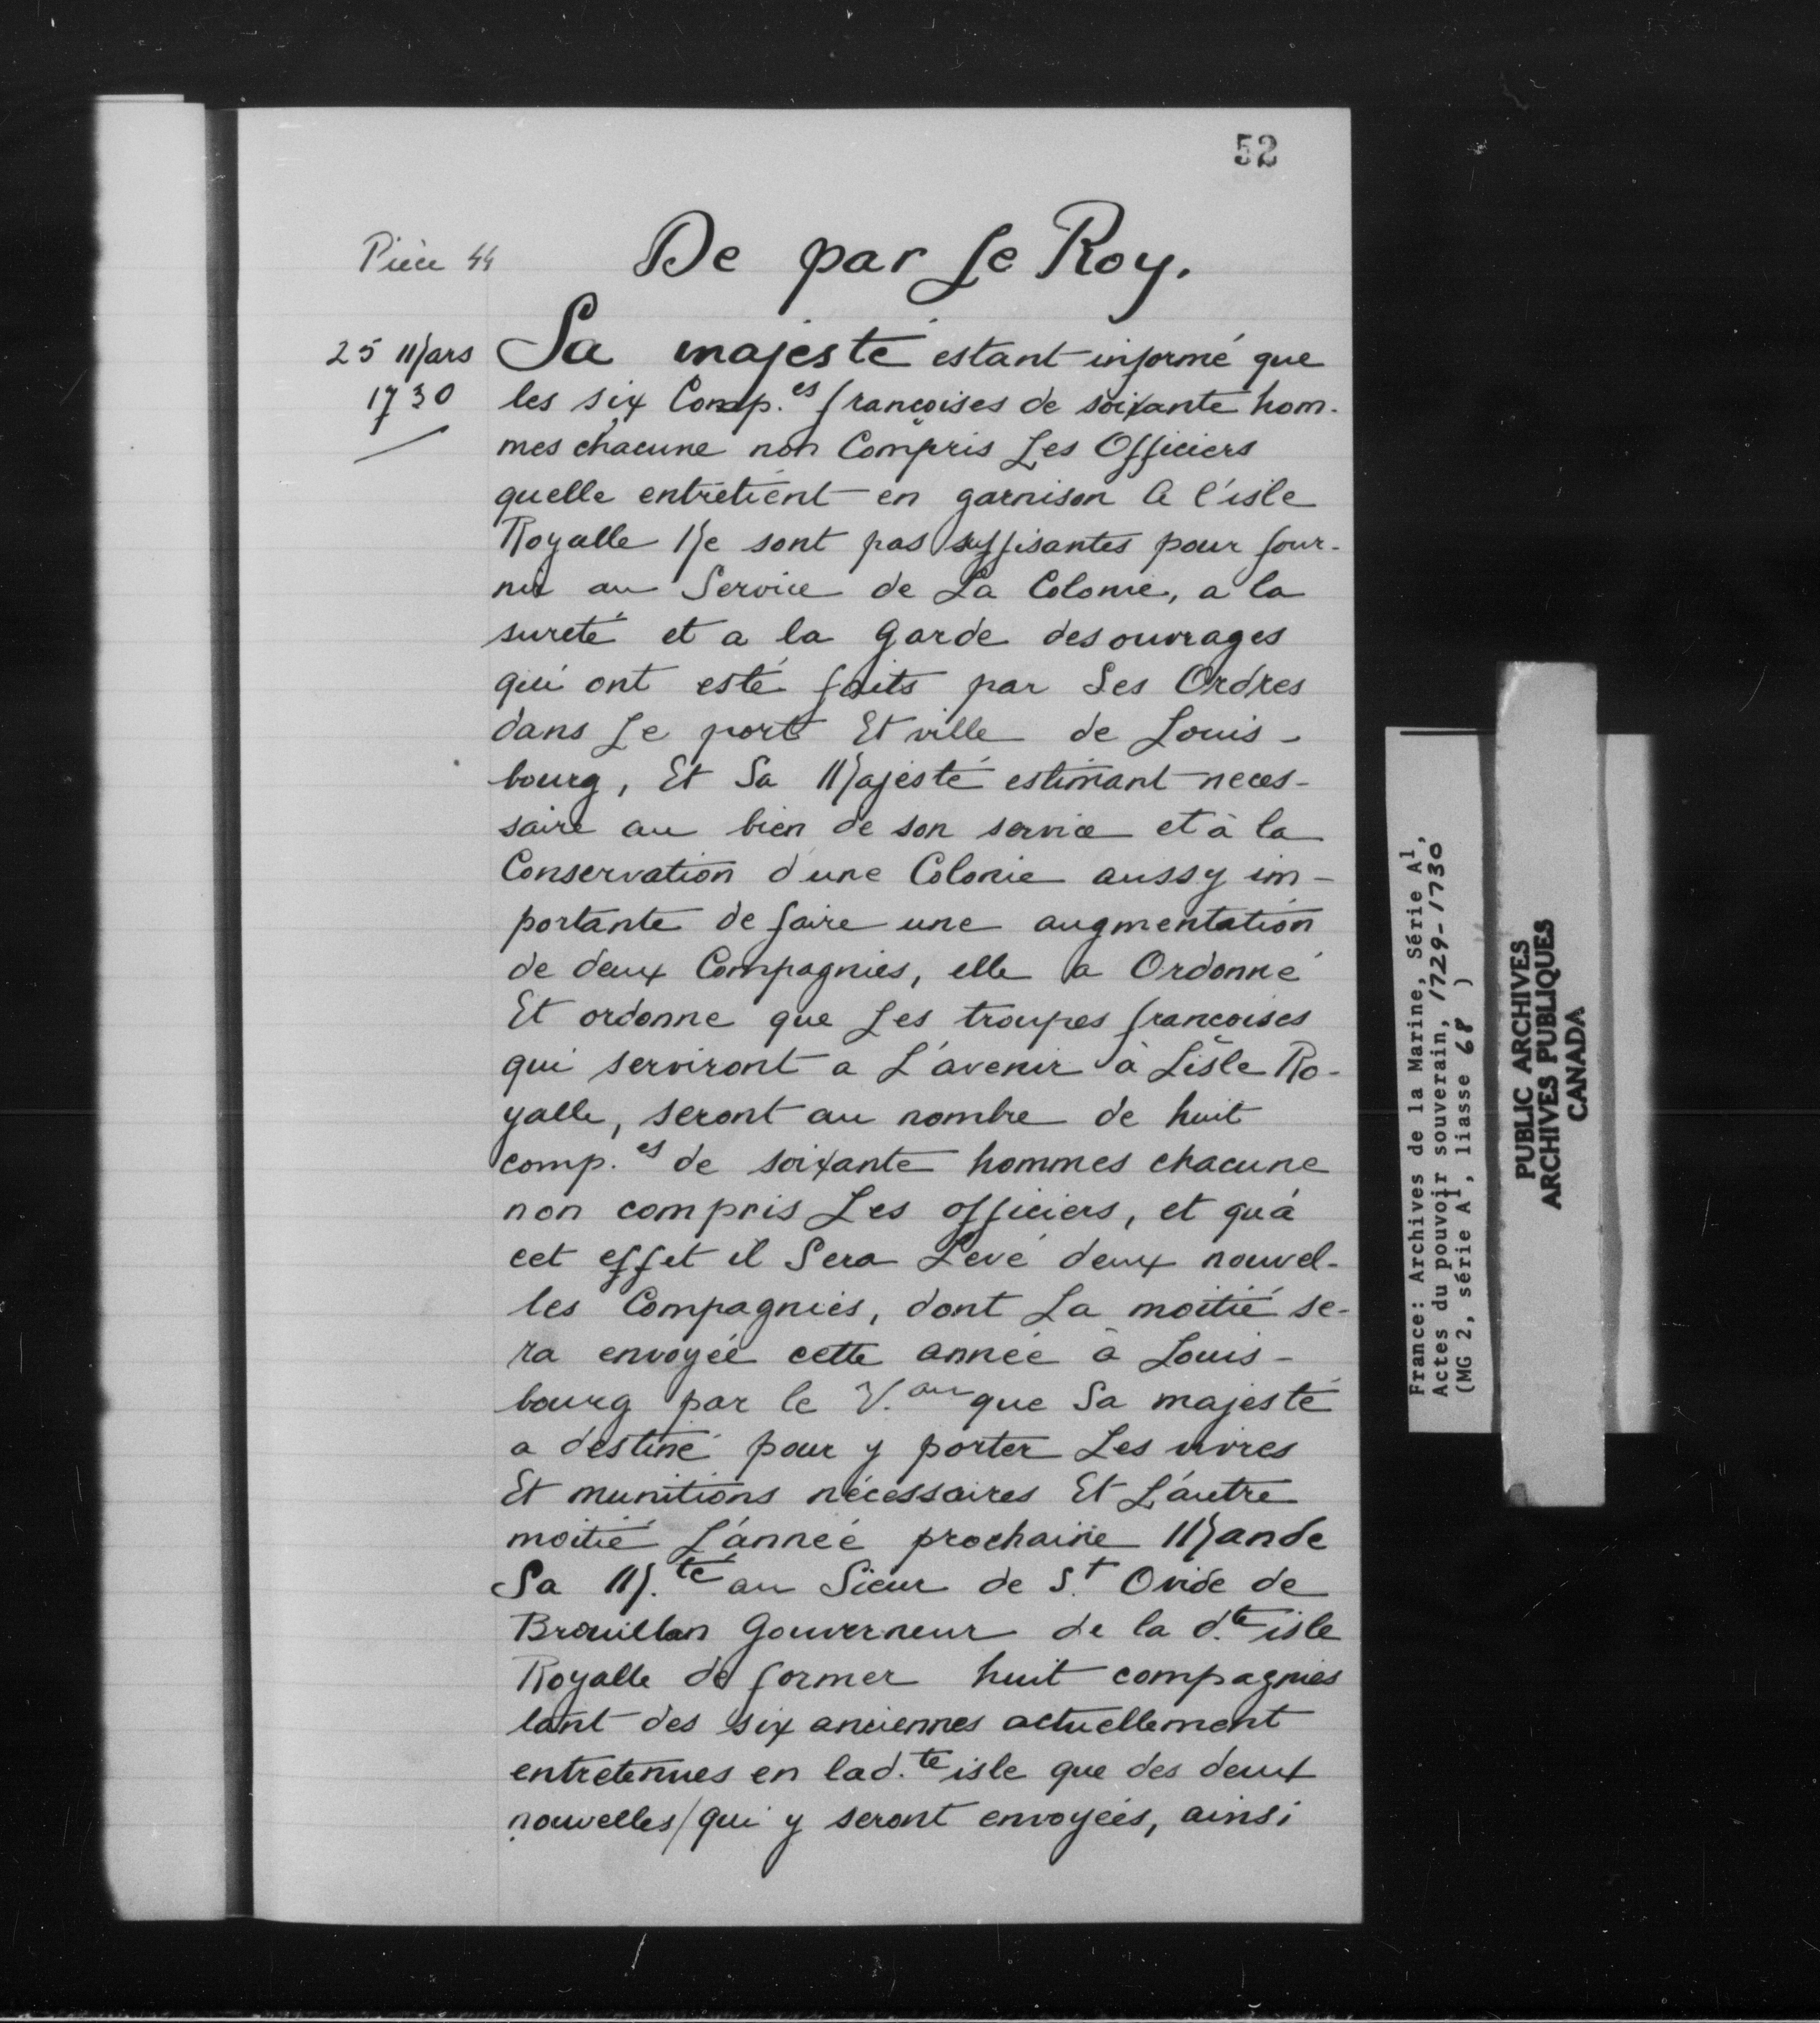 52
Pièce 44
De par Le Roy.
25 Mars
1730
Sa majesté estant informé que
les six Comp.es françoises de soixante hom-
mes chacune non Compris Les Officiers
quelle entretient en garnison A l'isle
Royalle Ne sont pas suffisantes pour four-
nir au Service de La Colonie, a la
sureté et a la garde des ouvrages
qui ont esté faits par Ses Ordres
dans Le port Et ville de Louis-
bourg, Et Sa Majesté estimant neces-
saire au bien de son service et à la
Conservation d'une Colonie aussy im-
portante de faire une augmentation
de deux Compagnies, elle a Ordonné
Et ordonne que Les troupes françoises
qui serviront a L'avenir à L'isle Ro-
yalle, seront au nombre de huit
comp.es de soixante hommes chacune
non compris Les officiers, et qu'à
cet effet il Sera Levé deux nouvel-
les Compagnies, dont La moitié se-
ra envoyée cette année à Louis-
bourg par le V.au que Sa majesté
a destiné pour y porter Les vivres
Et munitions nécessaires Et L'autre
moitié L'année prochaine Mande
Sa M.té au Sieur de S.t Ovide de
Brouillan Gouverneur de la d.te isle
Royalle de former huit compagnies
tant des six anciennes actuellement
entretenues en lad.te isle que des deux
nouvelles qui y seront envoyées, ainsi
France: Archives de la Marine, Série A1,
Actes du pouvoir souverain, 1729-1730
(MG 2, série A1, liasse 68 )
PUBLIC ARCHIVES
ARCHIVES PUBLIQUES
CANADA